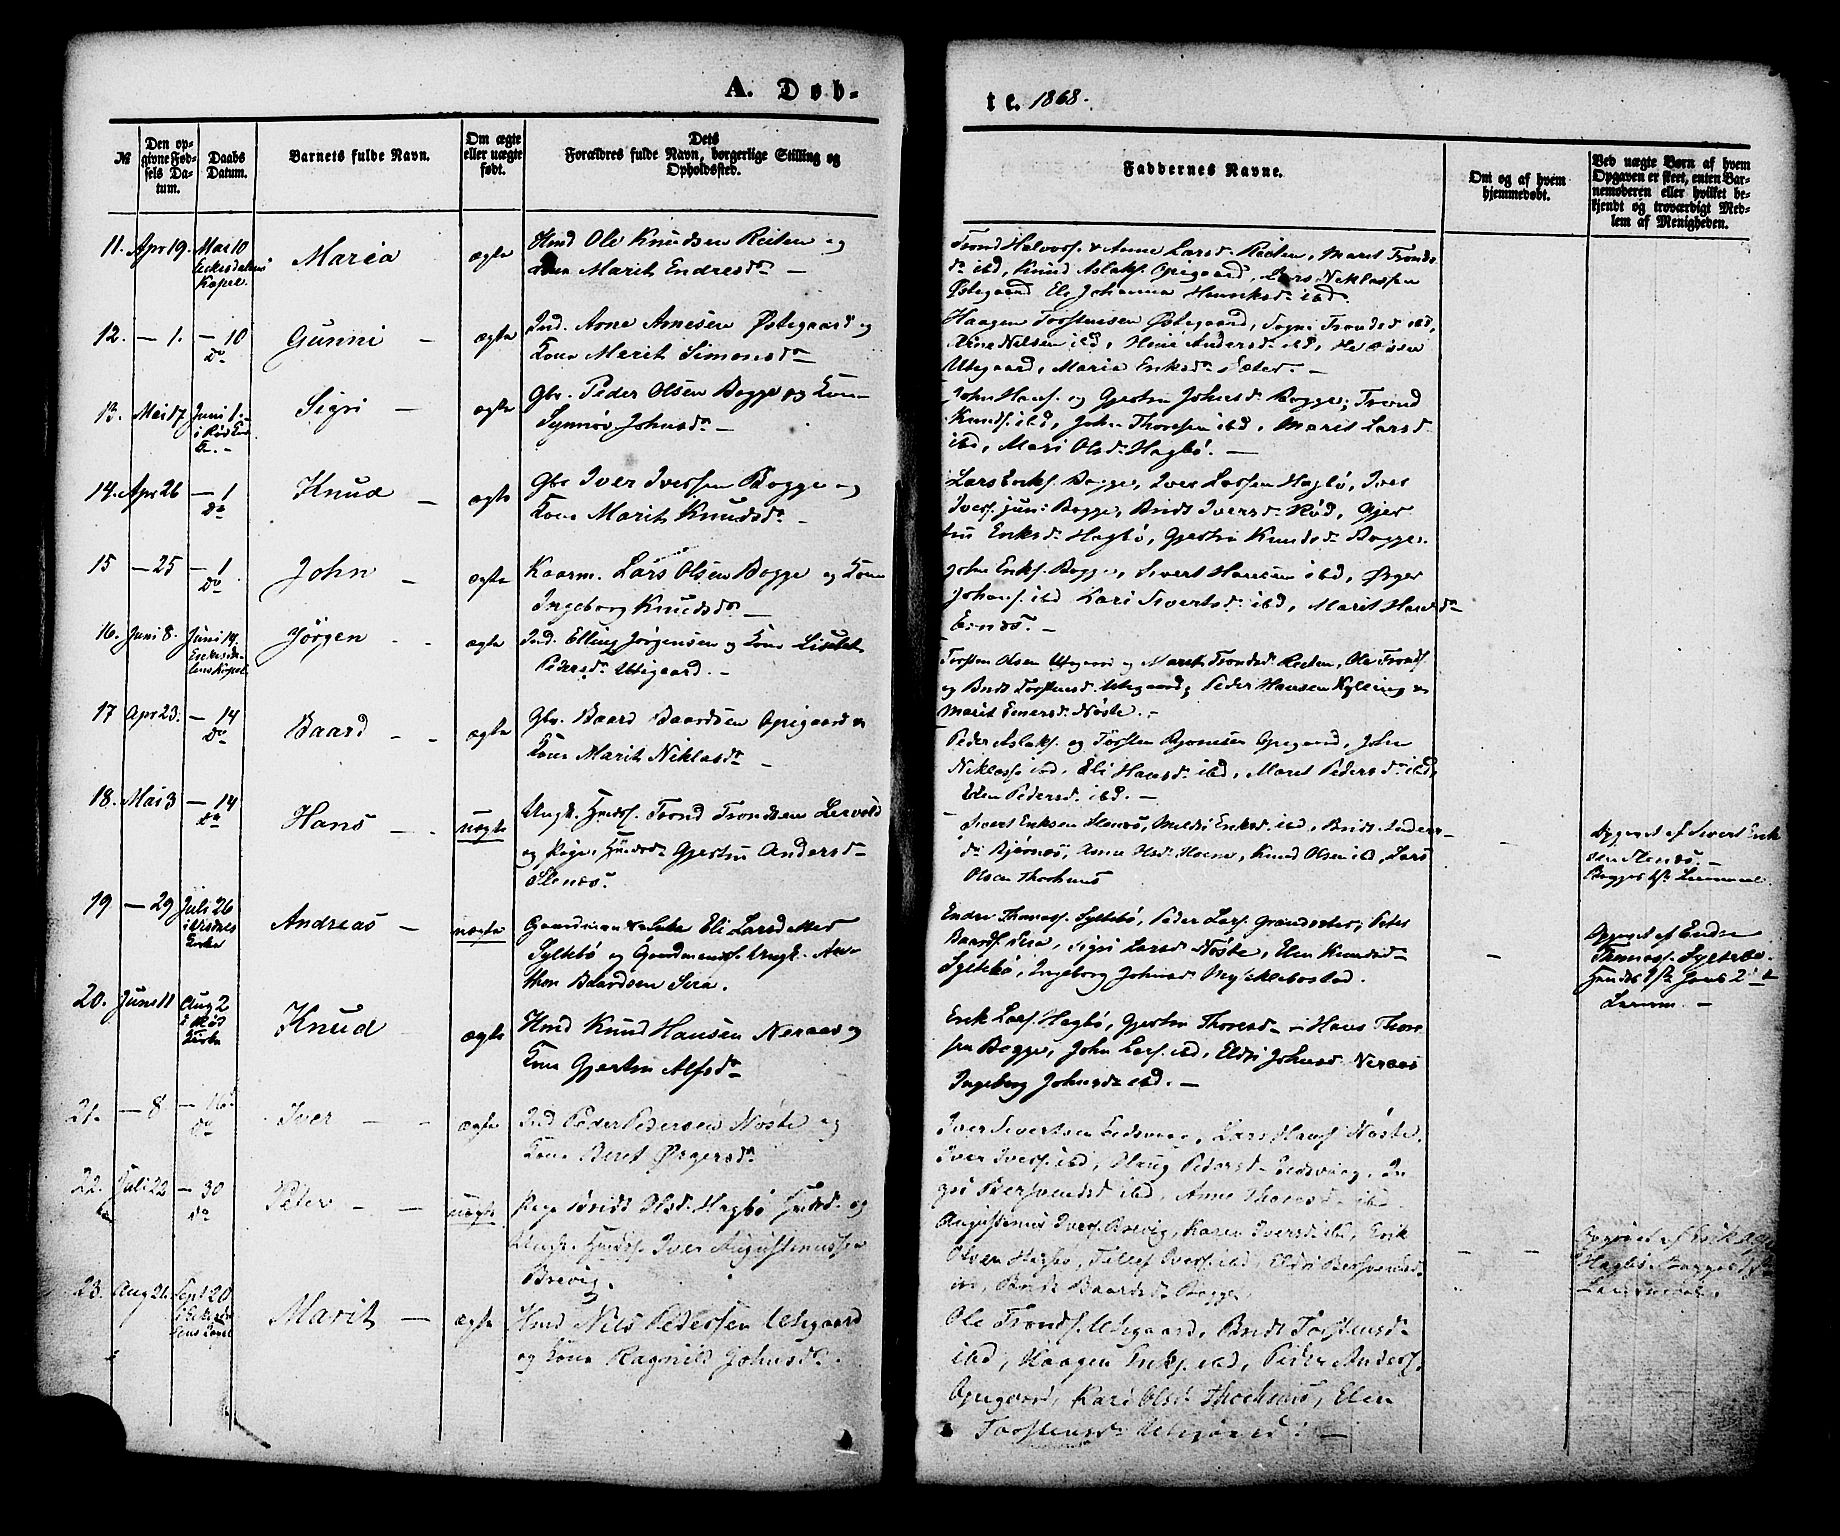 A. Døb-
te. 1868.
№
Den op-
givne Fød-
sels Da-
tum.
Daabs
Datum.
Barnets fulde Navn.
Om ægte
eller uægte
født.
Dets
Forældres fulde Navn, borgerlige Stilling og
Opholdssted.
Faddernes Navne.
Om og af hvem
hjemmedøbt.
Ved uægte Børn af hvem
Opgaven er skeet, enten Bar-
nemoderen eller hvilket be-
kjendt og troværdigt Med-
lem af Menigheden.
11. Apr 19. Mai 10 Maria ægte Hmd Ole Knudsen Reiten og
Kapel Marit Endresdr —
Trond Halvors. & Anne Larsd. Reiten, Marit Tronds
dr ibd, Knud Aslaks. Opegaard, Lars Niklassen
Østegaard Eli Johanna Henriksdr ibd.
12. — 1. — 10 Gunni — ægte Ind. Arne Arnesen Østegaard og
do Kone Marit Simonsdr
Haagen Torstensen Østegaard, Sogni Trondsd ibd,
Arne Nilsen ibd, Andersdr ibd, Ole
Utegaard, Maria Eriksdr Sæter.
13. Mai 17 Juni 1. Sigri — ægte Gbr. Peder Olsen Bogge og Kone
i Rød Synnøv Johnsdr —
John Hans. og Gjertru Johnsd Bogge, Trond
Knuds. ibd, John Thoresen ibd, Marit Larsd
ibd, Mari Olsdr Hagbø. —
14. Apr 26 — 1 Knud — ægte Gbr Iver Iversen Bogge og
do Kone Marit Knudsdr —
Lars Eriks. Bogge, Iver Larsen Hagbø, Iver
Ivers. jun: Bogge, Bridt Iversdr Rød, Gjer
tru Eriksdr Hagbø, Gjertru Knudsdr Bogge.
15 — 25 — 1 John — ægte Kaarm. Lars Olsen Bogge og Kone
do Ingeborg Knudsdr —
John Eriks. Bogge, Sivert Hansen ibd, Ørger
Johans. ibd Kari Sivertsdr ibd, Marit Hansdr
16. Juni 8. Juni 14. Jørgen — ægte Ind. Elling Jørgensen og Kone
Pedersdr Utigaard. —
Torsten Olsen Utegaard og Marit Trondsd Reiten, Ole Tronds.
og Bridt Torstensdr Utegaard, Peder Hansen Kylling &
Marit Einersdr Nøste. —
17 Apr 23. — 14 Baard — — ægte Gbr. Baard Baardsen Opigaard &
do Kone Marit Niklasdr —
Peder Aslaks. og Torsten Bjørnsen Opegaard, John
Niklass. ibd, Eli Hansdr ibd, Marit Pedersdr ibd,
Elen Pedersdr ibd. —
18. Mai 3 — 14 Hans — — uægte Ungk. Trond Trondsen Lervold
do og Pige Gjertru Andersdr
Stenæs.
Sivert Eriksen Stenæs, Eriksdr ibd, Bridt Anders
dr Bjørnæs, Anne Olsdr Hoem, Knud Olsen ibd, Lars
Olsen Thorhuus
— Opgivet af Sivert Erik
sen Stenæs. —
19 — 29 Juli 26 Andreas — uægte Gaardmand Eli Larsdatter
i Visdnes
Kirke
Syltebø og Gaardmandss. Ungk. An-
thon Baardsen Sira.
Endre Thomass. Syltebø, Peder Lars. Peter
Baards. Sira, Sigri Larsd Nøste, Elen Knudsdr
Syltebø, Ingeborg Johnsd Myklebostad.
— Opgivet af Endre
Thomass. Syltebø.
20. Juni 11 Aug 2 Knud — ægte Hmd Knud Hansen Neraas og
i Rød
Kirke
Kone Gjertru Alfsdr
Erik Lars. Hagbø, Gjertru Thoresdr — Hans Thore
sen Bogge, John Lars. ibd, Eldri Johnsd Neraas
Ingeborg Johnsdr ibd. —
21. — 8 — 16 Iver — — ægte Ind Peder Pedersen Nøste og
do Kone Beret Ørgersdr
Iver Sivertsen Eidsvaag, Lars Hans. Nøste,
Iver Ivers. ibd, Haug Pedersdr Eidsvaag, In
gri Bersvendsd ibd, Anne Thoresdr ibd
22. Juli 22 — 30 Peter — — uægte Pige Bridt Olsd. Hagbø og
do Ungk. Iver Augustinussen
Brevig.
Augustinus Ivers. Brevig, Karen Iversd ibd, Erik
Olsen Hagbø, Tollef Ivers. ibd, Eldri Bersvendsd
ibd, Bridt Baardsdr Bogge.
— — Opgivet af Erik
Hagbø
23. Aug 26. Sept 20 Marit — ægte Hmd Nils Pedersen Utigaard
og Kone Ragnild Johnsdr.
Ole Tronds. Utigaard, Bridt Torstensdr
ibd, Haagen Eriks. ibd, Peder Anders.
Opegaard, Kari Olsdr Thorhuus, Elen
Torstensdr Utigaard. —